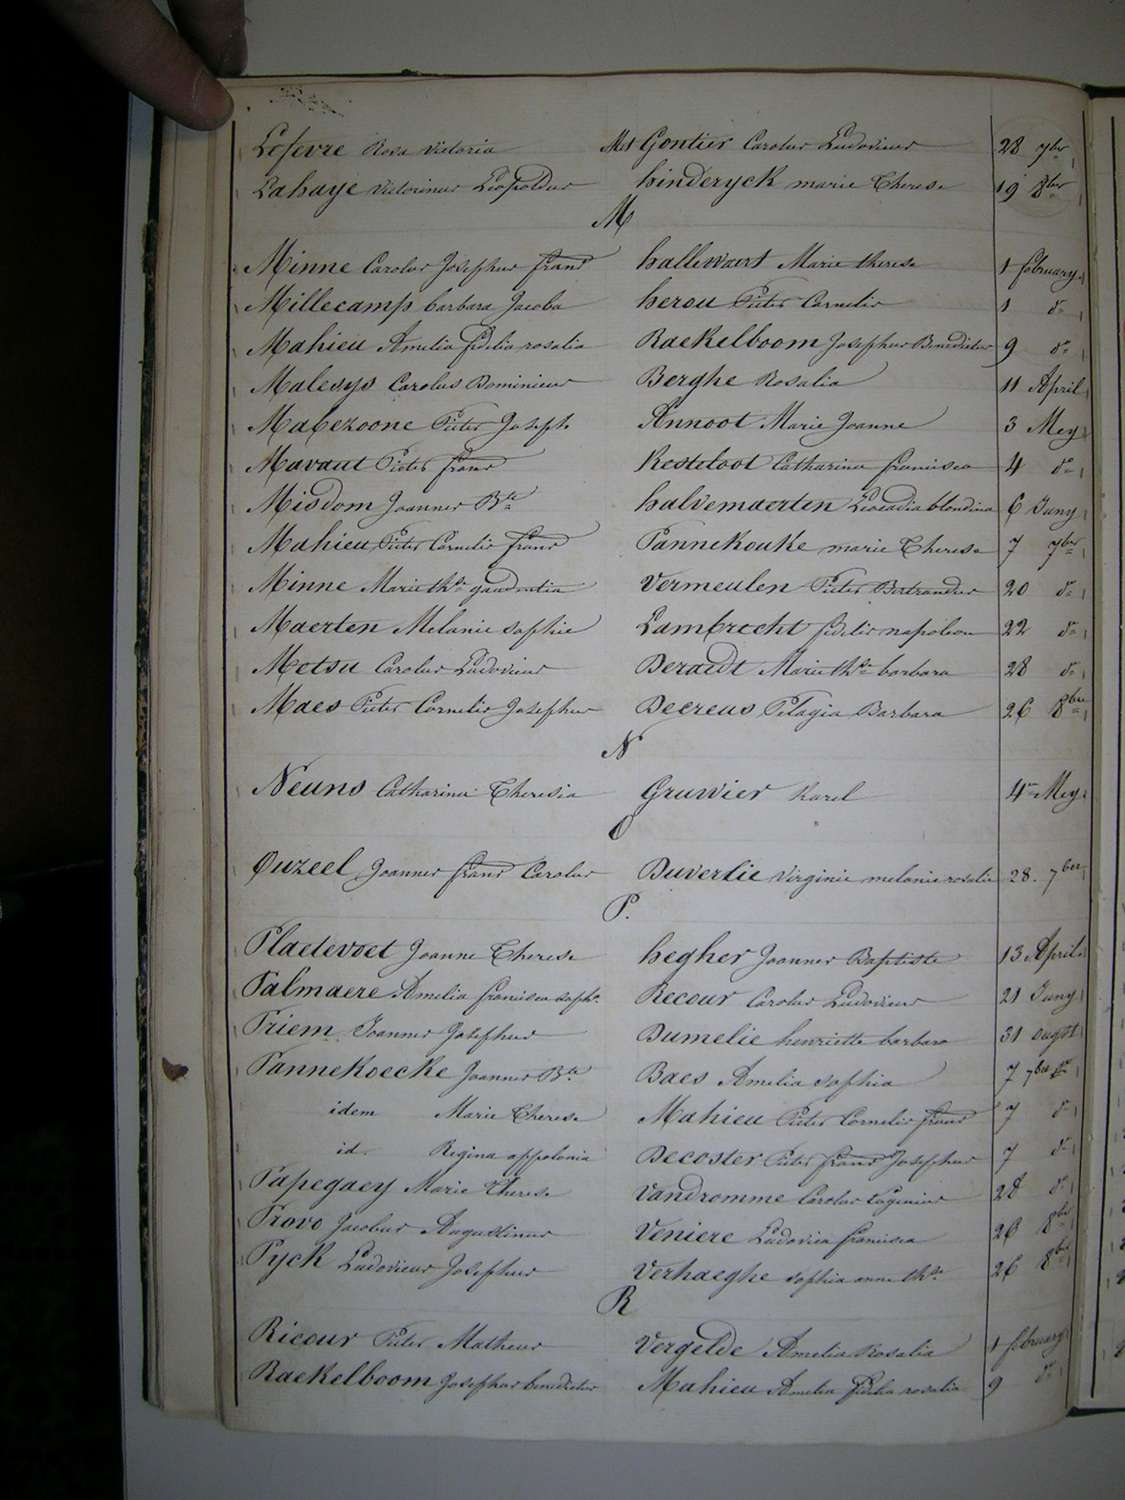 Lefevre Rosa Victoria Met Gontier Carolus Ludovicus 28 7ber
Lahaye Victorinus Leopoldus hinderyck marie Therese 19 8ber
M
Minne Carolus Josephus frans hallewaert Marie therese 1 february
Millecamp barbara Jacoba herou Pieter Cornelis 1 do
Mahieu Amelia fidelia rosalia Raekelboom Josephus Benedictus 9 do
Malesys Carolus Dominicus Berghe Rosalia 11 April
Mabezoone Pieter Joseph Annoot Marie Joanne 3 Mey
Mavaut Pieter frans Kesteloot Catharina francisca 4 do
Misdom Joannes Bte halvemaerten Leocadia blondina 6 Juny
Mahieu Pieter Cornelis frans Pannekouke marie Therese 7 7ber
Minne Marie the gaudentia Vermeulen Pieter Bertrandus 20 do
Maerten Melanie sophie Lambrecht fidelis napoleon 22 do
Metsu Carolus Ludovicus Deraedt Marie the barbara 28 do
Maes Pieter Cornelis Josephus Decreus Pelagia Barbara 26 8ber
N
Neuns Catharina Theresia Gruwier Karel 4 Mey
O
Ouzeel Joannes frans Carolus Duverlie Virginie melanie rosalie 28 7ber
P.
Plaetevoet Joanne Therese hegher Joannes Baptiste 13 April
Palmaere Amelia francisca soph. Recour Carolus Ludovicus 21 Juny
Priem Joannes Josephus Dumelie henriette barbara 31 ougst
Pannekoecke Joannes Bte Baes Amelia sophia 7 7ber
idem Marie Therese Mahieu Pieter Cornelis frans 7 do
id. Regina appolonia Decoster Pieter frans Josephus 7 do
Papegaey Marie Therese Vandromme Carolus Eugenius 28 do
Provo Jacobus Augustinus Veniere Ludovica francisca 26 8ber
Pyck Ludovicus Josephus Verhaeghe sophia anne the 26 8ber
R
Ricour Pieter Matheus Vergelde Amelia Rosalia 1 february
Raekelboom Josephus benedictus Mahieu Amelia fidelia rosalia 9 do